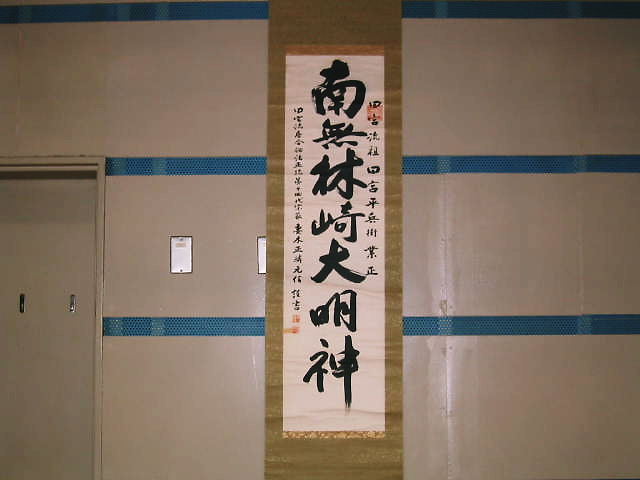 田宮流祖田宮平兵衛業正
南無林崎大明神
田宮流居合術法正統第十四代宗家妻木正麟元信謹書